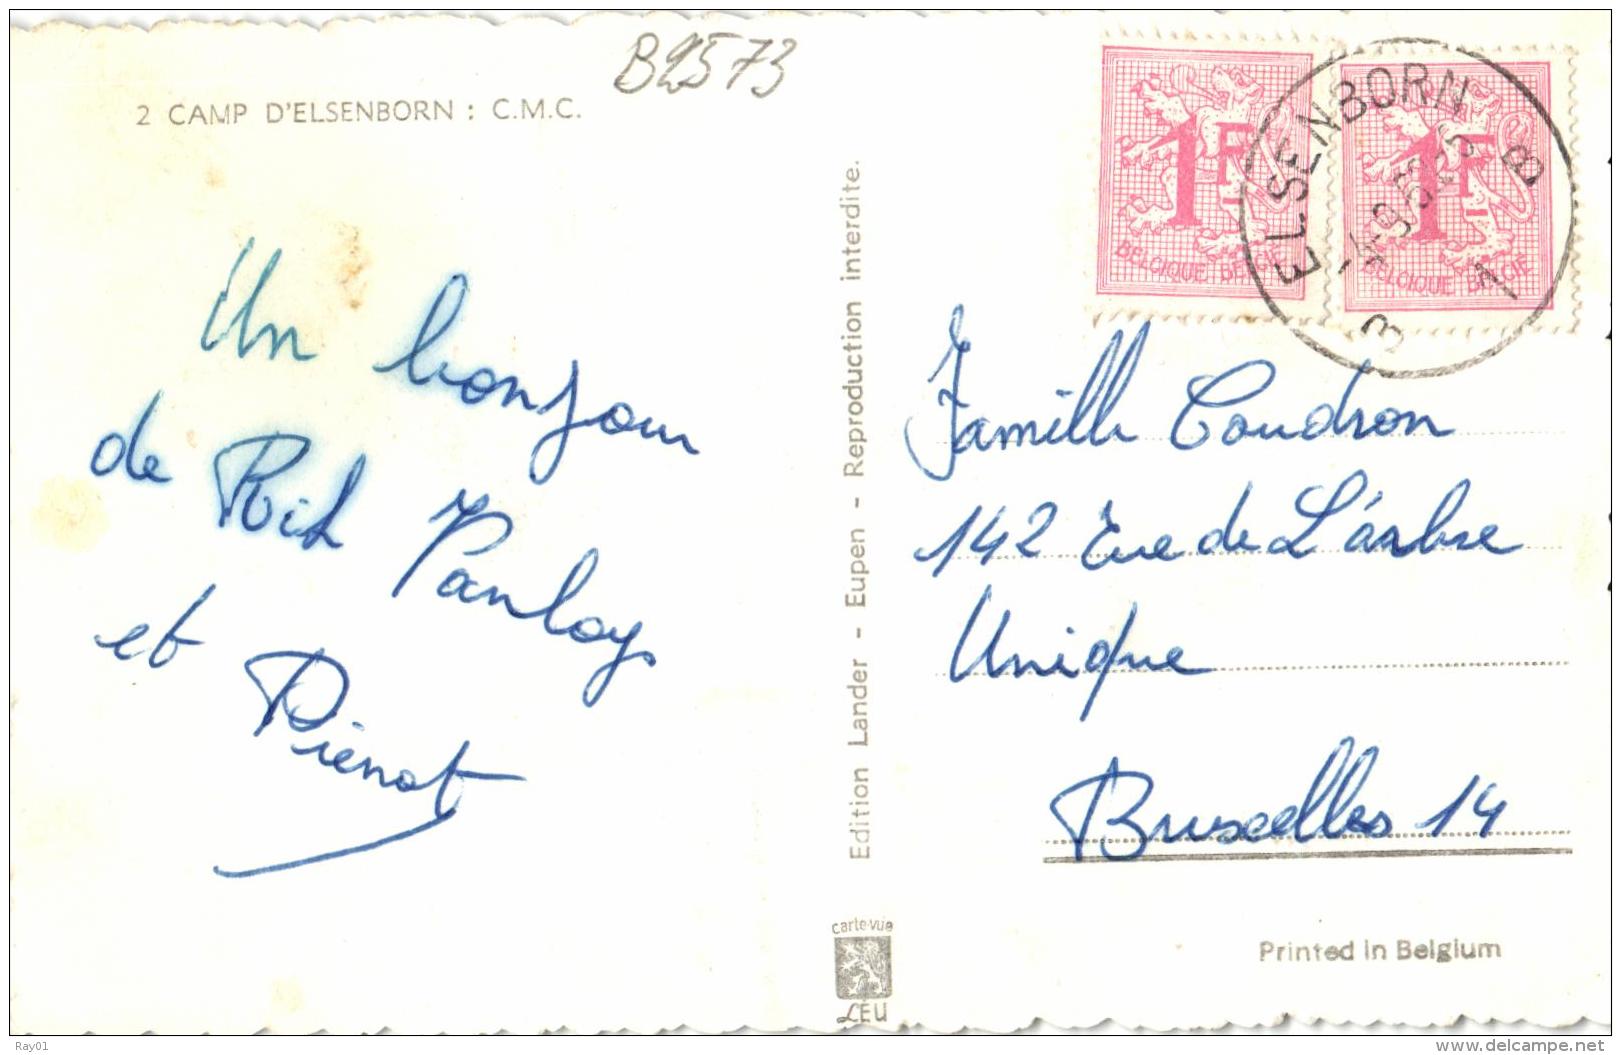 B2573
2 CAMP D'ELSENBORN : C.M.C.
Un bonjour
de Rik Pauloy
et Pierrot
Edition Lander - Eupen - Reproduction interdite.
1F
BELGIQUE BELGIË
1F
BELGIQUE BELGIË
ELSENBORN
B
Famille Coudron
142 Rue de L'arbre
Unique
Bruxelles 14
carte-vue
LÉU
Printed in Belgium
Ray01
www.delcampe.net